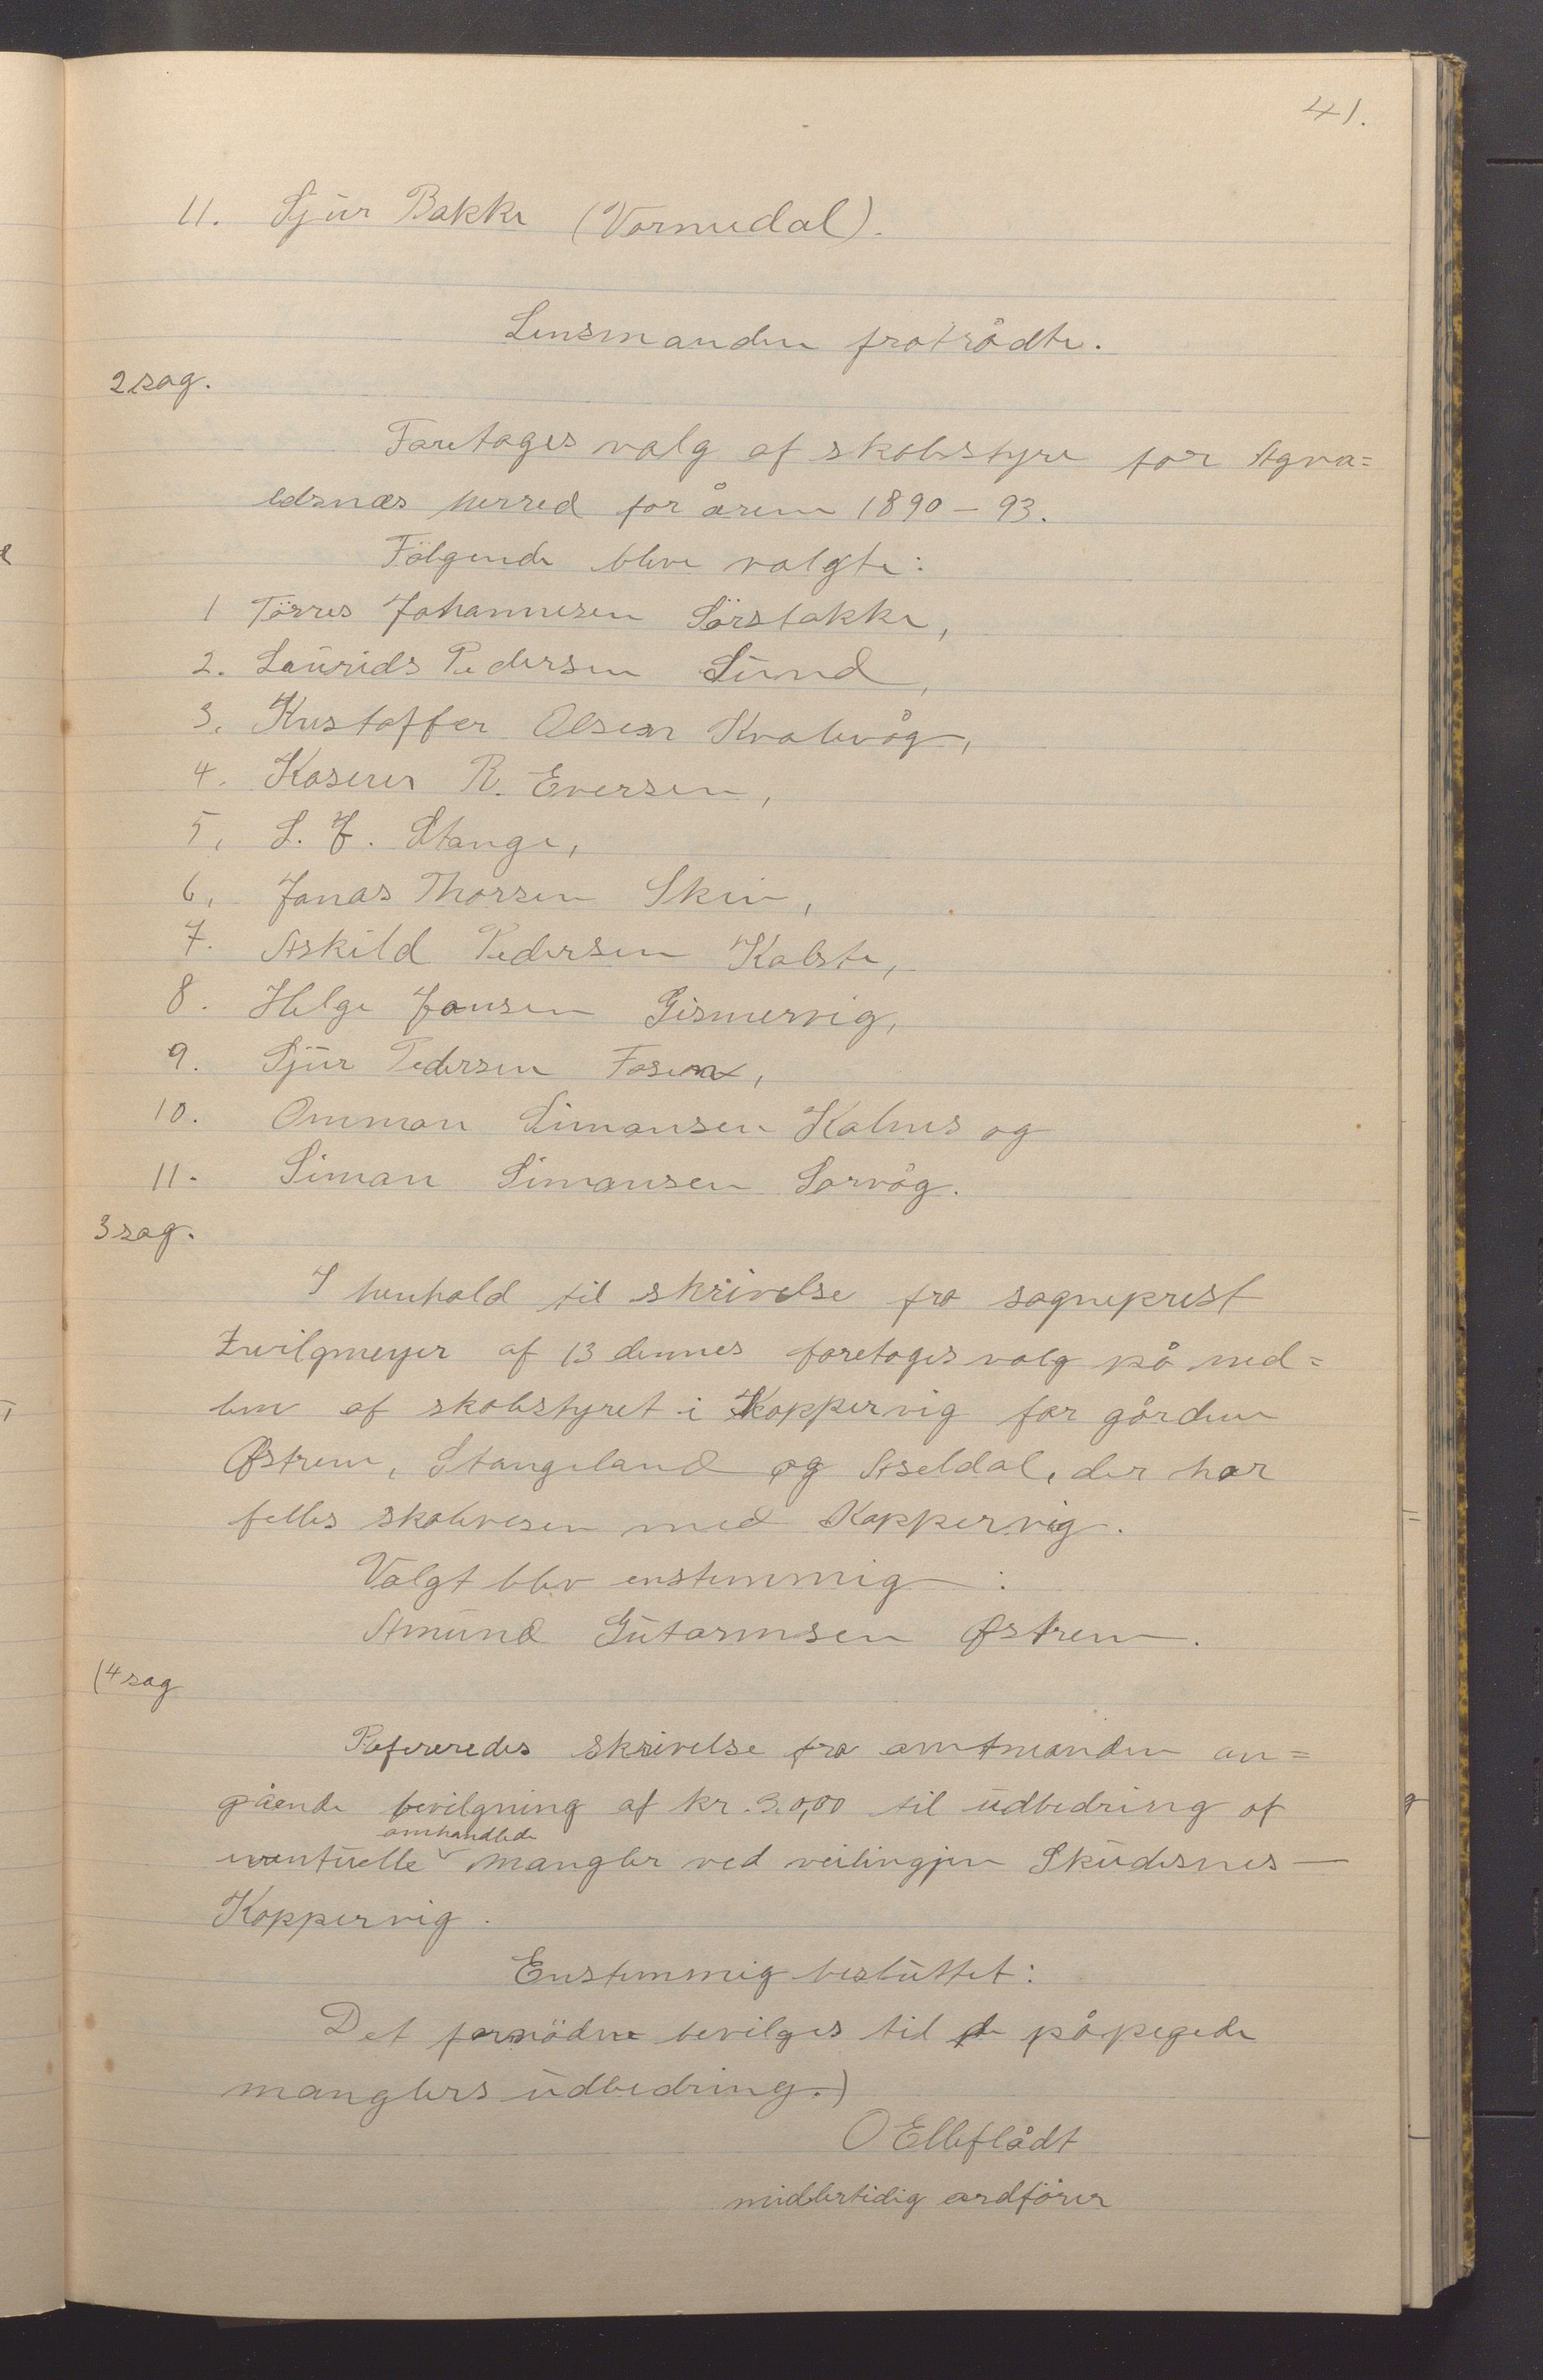 41.
11. Sjur Bakke (Vormedal).
Lensmanden fratrådte.
2 sag.
Foretages valg af skolestyre for Agva=
ldsnæs herred for årene 1890 – 93.
Følgende bleve valgte:
1 Törres Johannesen Sörstokke,
2. Laurids Pedersen Lund,
3. Kristoffer Olsen Kvalevåg,
4. Kaserer R. Eversen,
5, S. J. Stange,
6, Jonas Thorsen Skeie,
7. Askild Pedersen Kolste,
8. Helge Jonsen Gismervig,
9. Sjur Pedersen Fosen,
10. Ommon Simonsen Kolnes og
11. Simon Simonsen Sørvåg.
3 sag.
I henhold til skrivelse fra sogneprest
Zwilgmeyer af 13 dennes foretoges valg på med=
lem af skolestyret i Koppervig for gårdene
Østrem, Stangeland og Aseldal, der har
felles skolevesen med Koppervig.
Valgt blev enstemmig:
Amund Gutormsen Østrem.
(4 sag
Refereredes skrivelse fra amtmanden an=
gående bevilgning af kr. 30,00 til udbedring af
omhandlede
eventuelle mangler ved veilingjen Skudesnes –
Koppervig.
Enstemmig besluttet:
Det fornödne bevilges til de påpegede
manglers udbedring.)
O Elleflådt
midlertidig ordförer